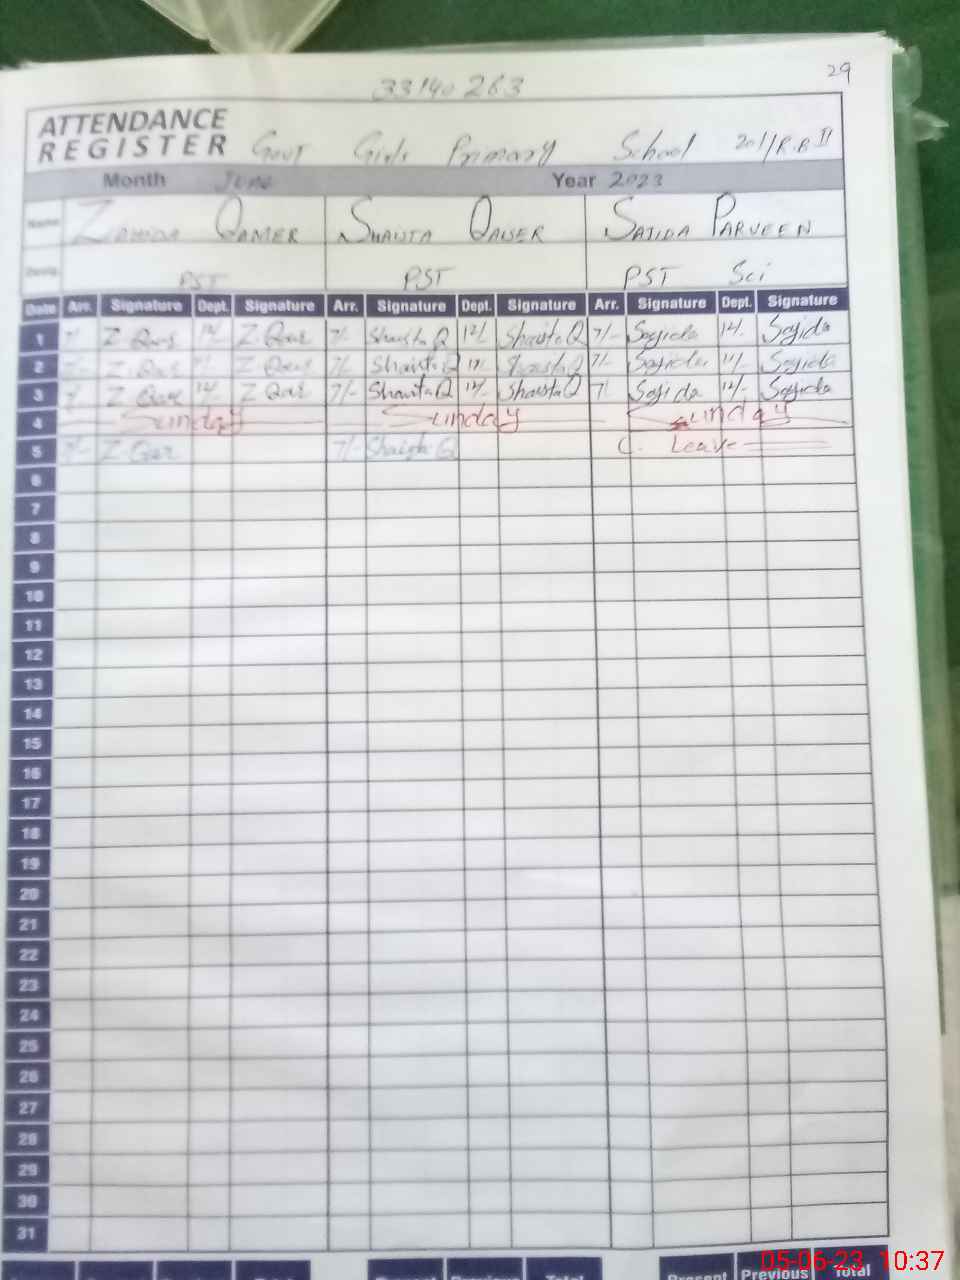 29
33140263
ATTENDANCE
REGISTER Govt Girls Primary School 201/R.B II
Month June Year 2023
Name Zahida Qamer Shaista Qaiser Sajida Parveen
Desig. PST PST PST Sci
Date Arr. Signature Dept. Signature Arr. Signature Dept. Signature Arr. Signature Dept. Signature
1 7/- Z. Qar 12/- Z. Qar 7/- Shaista Q 12/- Shaista Q 7/- Sajida 12/- Sajida
2 Z. Qar Z Qar 7/- Shaista Q 12/- Shaista Q 7/- Sajida 12/- Sajida
3 Z Qar 12/- Z Qar 7/- Shaista Q 12/- Shaista Q 7/ Sajida 12/- Sajida
4 Sunday Sunday Sunday
5 Z. Qar 7/- Shaista Q C. Leave
6
7
8
9
10
11
12
13
14
15
16
17
18
19
20
21
22
23
24
25
26
27
28
29
30
31
Present Previous Total Present Previous Total
05-06-23 10:37